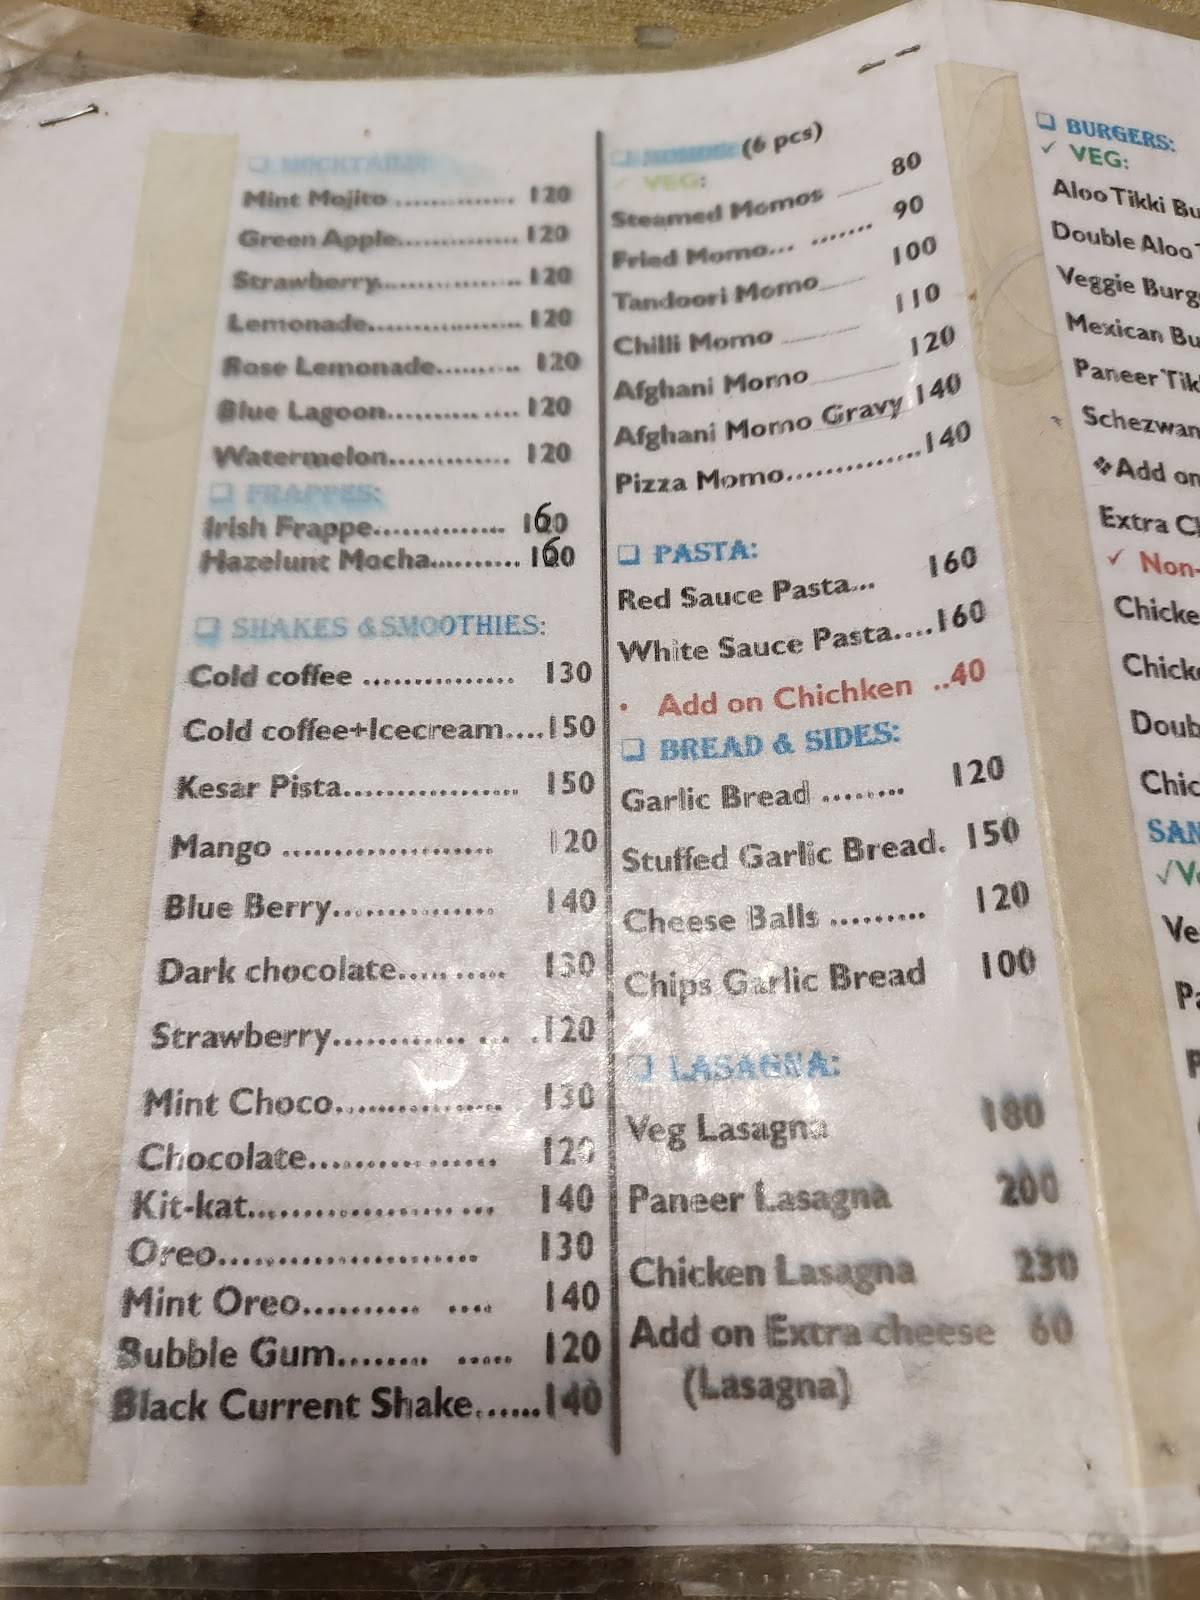 MOCKTAILS:
Mint Mojito .............. 120
Green Apple.............. 120
Strawberry................ 120
Lemonade.................. 120
Rose Lemonade.......... 120
Blue Lagoon.............. 120
Watermelon............. 120
FRAPPES:
Irish Frappe.............. 160
Hazelunt Mocha.......... 160
SHAKES & SMOOTHIES:
Cold coffee ............... 130
Cold coffee+Icecream....150
Kesar Pista................. 150
Mango .................... 120
Blue Berry............... 140
Dark chocolate..... ..... 130
Strawberry............ ... .120
Mint Choco................ 130
Chocolate................. 120
Kit-kat.................. ... 140
Oreo........................ 130
Mint Oreo.......... .... 140
Bubble Gum........ ..... 120
Black Current Shake......140
MOMOS: (6 pcs)
VEG:
Steamed Momos 80
Fried Momo... ....... 90
Tandoori Momo 100
Chilli Momo 110
Afghani Momo 120
Afghani Momo Gravy 140
Pizza Momo..............140
PASTA:
Red Sauce Pasta... 160
White Sauce Pasta....160
• Add on Chichken ..40
BREAD & SIDES:
Garlic Bread ........ 120
Stuffed Garlic Bread. 150
Cheese Balls ......... 120
Chips Garlic Bread 100
LASAGNA:
Veg Lasagna 180
Paneer Lasagna 200
Chicken Lasagna 230
Add on Extra cheese 60
(Lasagna)
BURGERS:
✓ VEG:
Aloo Tikki Bu
Double Aloo T
Veggie Burg
Mexican Bu
Paneer Tik
Schezwan
❖Add on
Extra Ch
✓ Non-
Chicke
Chick
Doub
Chic
SAN
√Ve
Ve
Pa
P